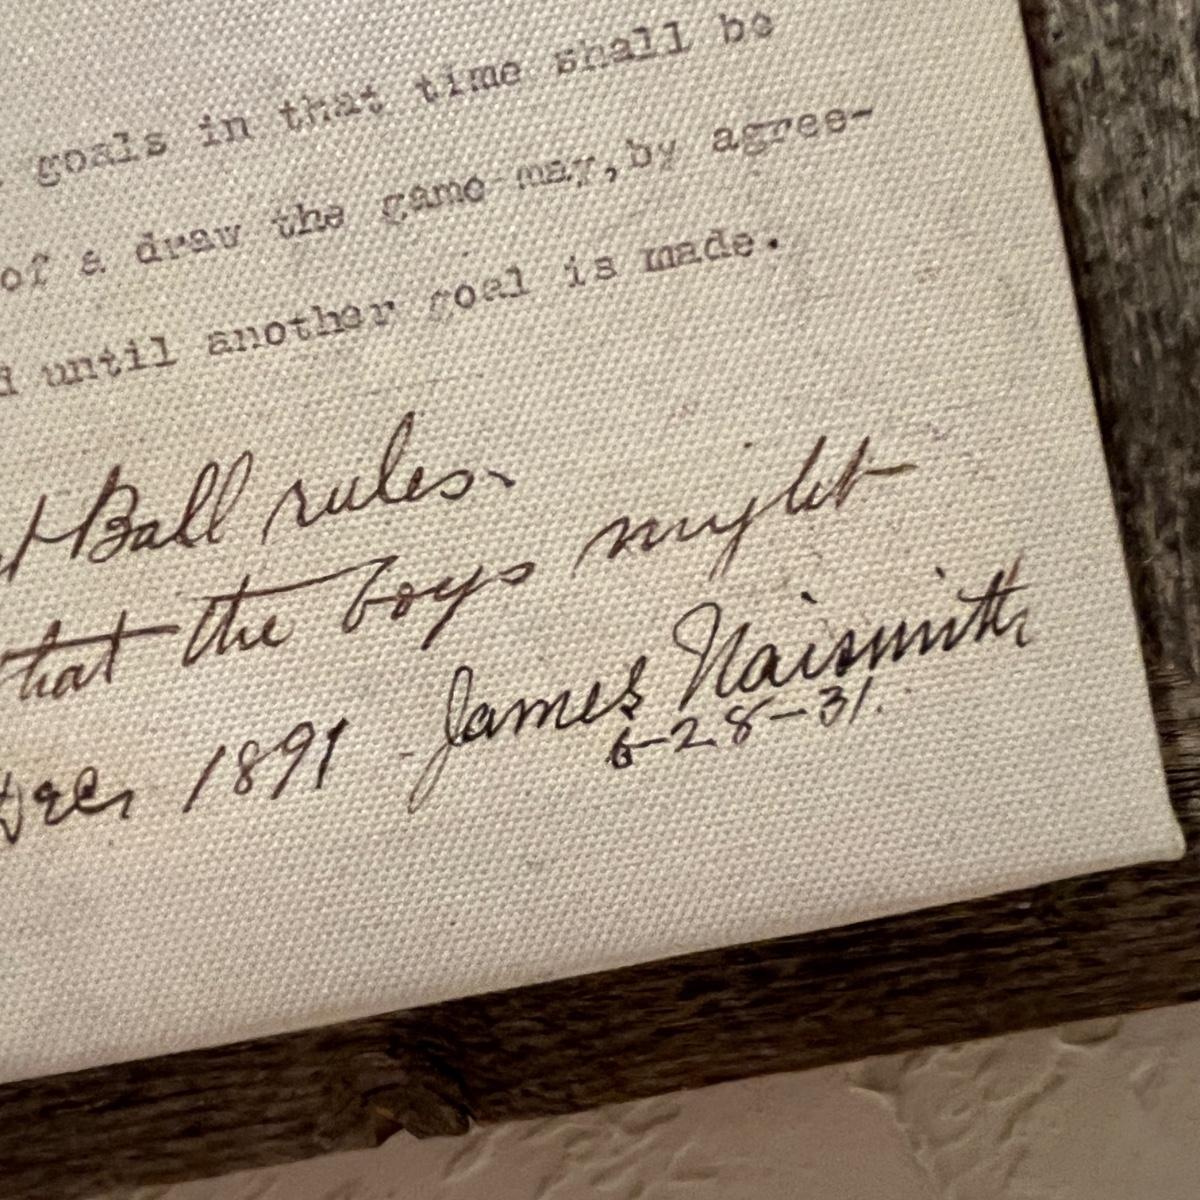 goals in that time shall be
of a draw the game may,by agree-
until another goal is made.
Ball rules.
that the boys might
Dec, 1891 - James Naismith
6-28-31.